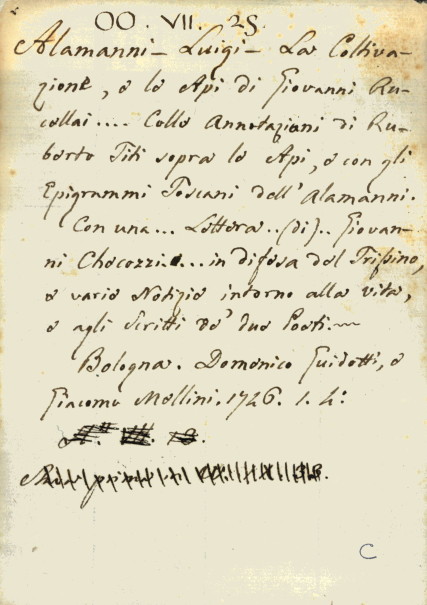 OO. VII. 25.
Alamanni - Luigi - La Coltiva-
zione, e le Api di Giovanni Ru-
cellai.... Colle Annotazioni di Ru-
berto Titi sopra le Api, e con gli
Epigrammi Toscani dell'Alamanni.
Con una... Lettera..(di).. Giovan-
ni Checozzi... in difesa del Trissino,
e varie Notizie intorno alla vita,
e agli Scritti de' due Poeti.
Bologna. Domenico Guidotti, e
Giacomo Mellini. 1746. 1. 4:
C